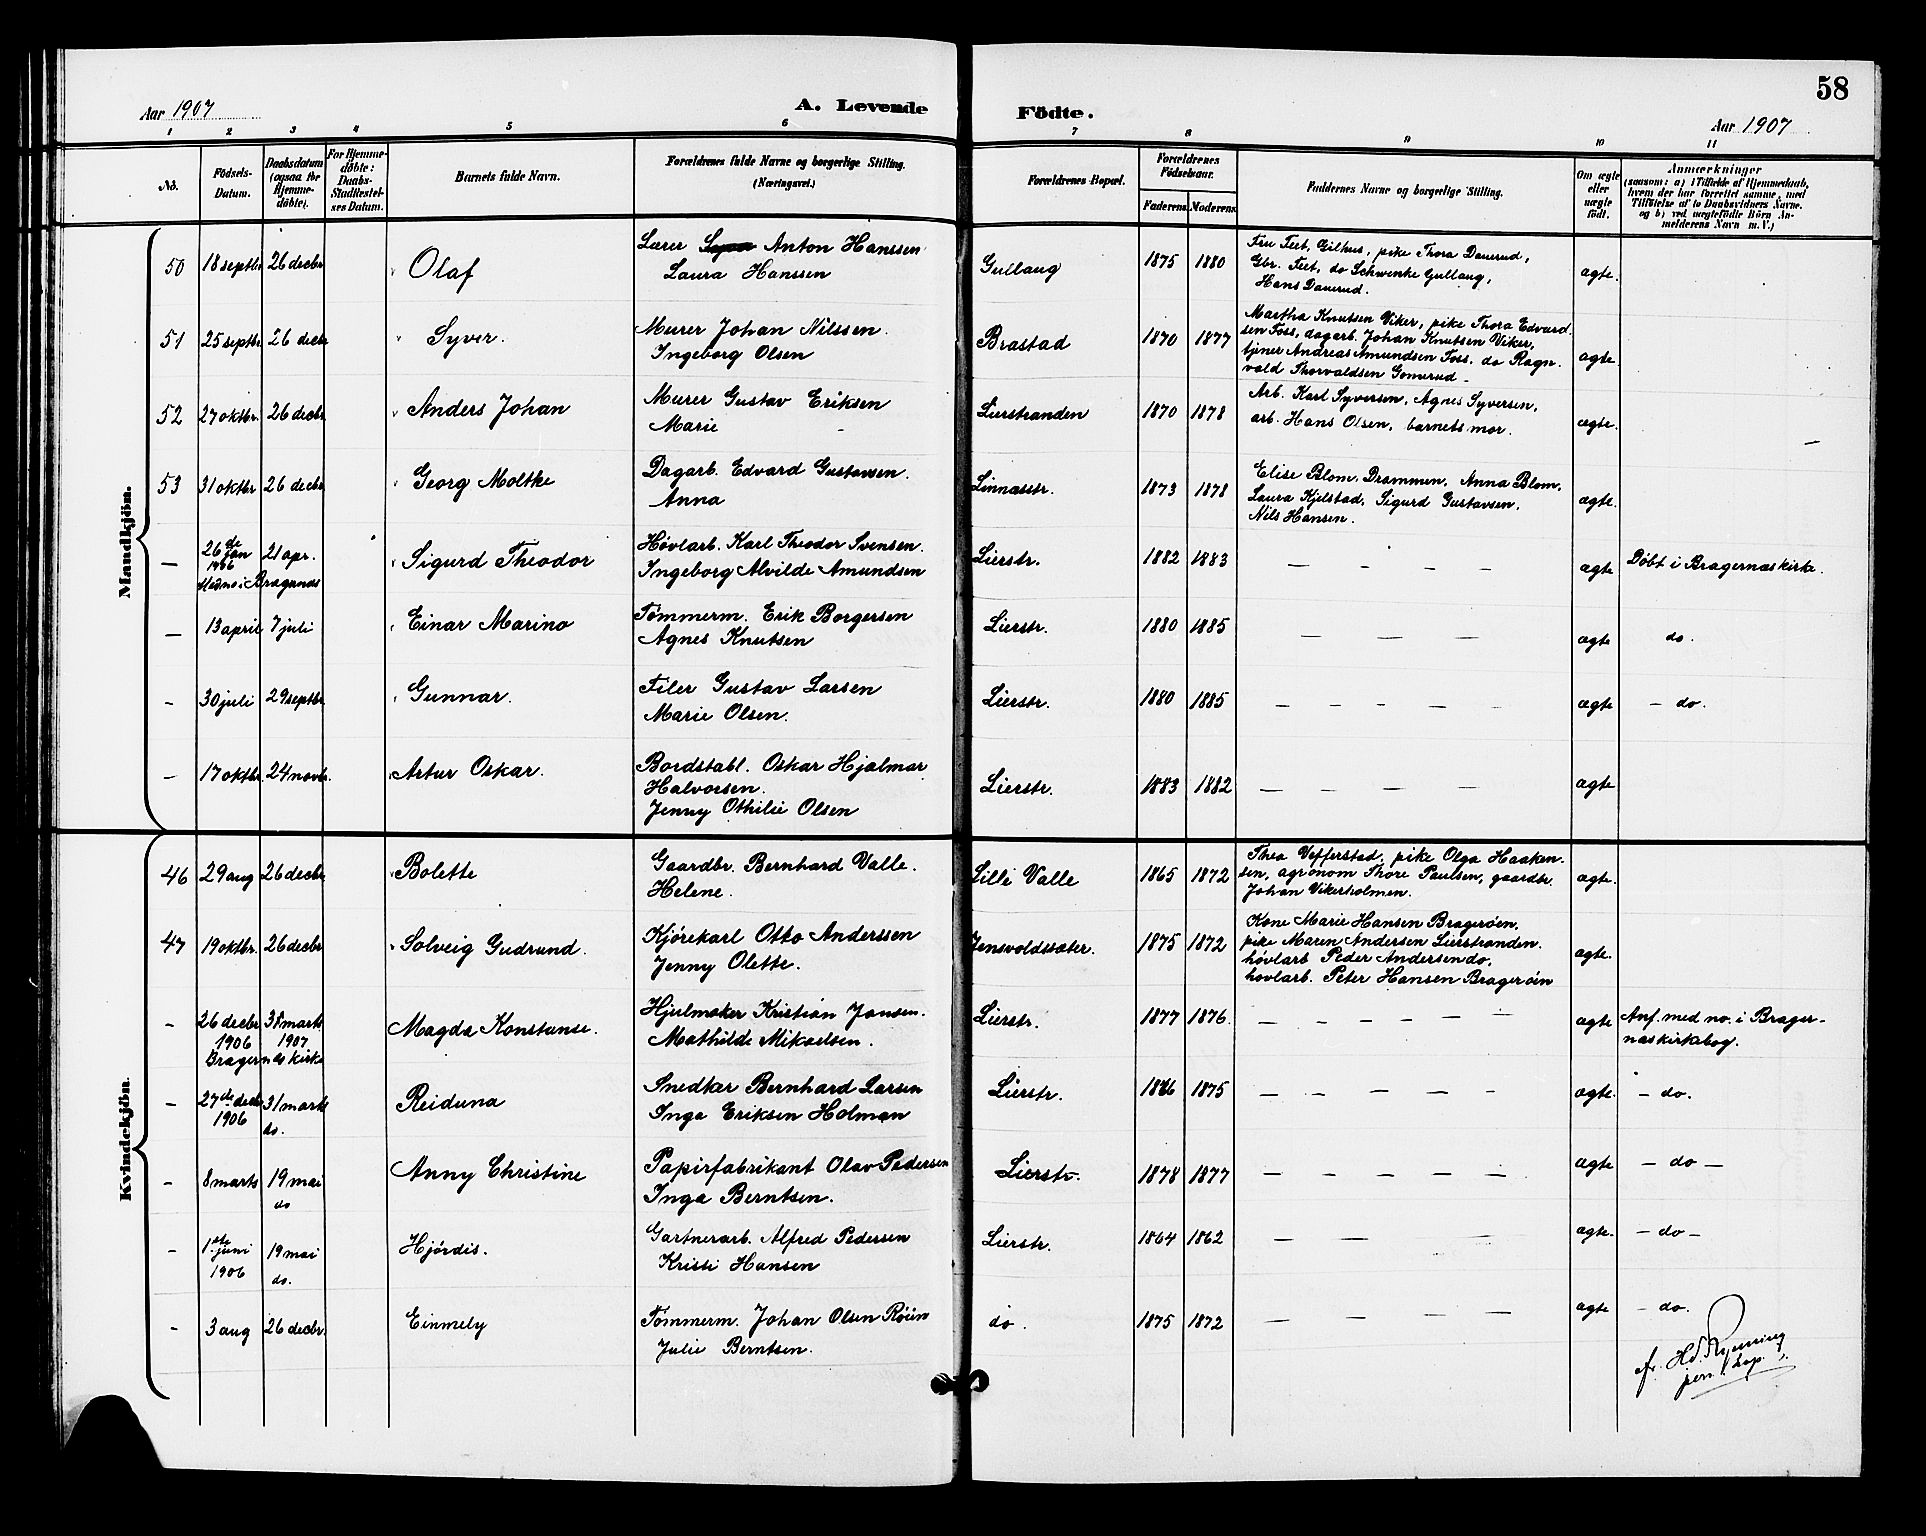 58
Aar 1907
A. Levende
Födte.
Aar 1907
1 2 3 4 5 6 7 8 9 10 11
No.
Födsels-
Datum.
Daabsdatum
(ogsaa for
Hjemme-
döbte).
For Hjemme-
döbte:
Daabs-
Stadfæstel-
ses Datum.
Barnets fulde Navn.
Forældrenes fulde Navne og borgerlige Stilling.
(Næringsvei.)
Forældrenes Bopæl.
Forældrenes
Födselsaar.
Faderens Moderens
Faddernes Navne og borgerlige Stilling.
Om ægte
eller
uægte
födt.
Anmærkninger
(saasom: a) i Tilfælde af Hjemmedaab,
hvem der har forrettet samme, med
Tilföielse af to Daabsvidners Navne.
og b) ved uægtefödte Börn An-
melderens Navn m. V.)
Mandkjön.
50 18 septbr 26 decbr Olaf
Lærer Anton Hanssen
Laura Hanssen
Gullaug 1875 1880
Fru Feet, Gilhus, pike Thora Dauerud,
Gbr. Feet, do Schwenke Gullaug,
Hans Dauerud.
ægte.
51 25 septbr. 26 decbr Syver.
Murer Johan Nilssen.
Ingeborg Olsen
Brastad 1870 1877
Martha Knutsen Viker, pike Thora Edvard
sen Foss, dagarb. Johan Knutsen Viker,
tjener Andreas Amundsen Foss, do Ragn-
vald Thorvaldsen Gomerud -
ægte.
52 27 oktbr. 26 decbr. Anders Johan
Murer Gustav Eriksen
Marie -
Lierstranden 1870 1878
Arb. Karl Syversen, Agnes Syversen,
arb. Hans Olsen, barnets mor.
ægte. -
53 31 oktbr 26 decbr Georg Moltke
Dagarb. Edvard Gustavsen.
Anna
Linnæsstr. 1873 1878
Elise Blom, Drammen, Anna Blom,
Laura Kjelstad, Sigurd Gustavsen,
Nils Hansen.
ægte.
— 26de jan 1906 21 apr. Sigurd Theodor
Med no i Bragernæs
Høvlarb. Karl Theodor Svensen.
Ingeborg Alvilde Amundsen
Lierstr. 1882 1883 — — — — ægte Döbt i Bragernæs kirke.
— 13 april 7 juli Einar Marino
Tømmerm. Erik Borgersen
Agnes Knutsen
Lierstr. 1880 1885 — — — ægte do.
- 30 juli 29 septbr Gunnar.
Filer Gustav Larsen
Marie Olsen.
Lierstr. 1880 1885 — — - — - ægte - do.
- 17 oktbr. 24 novbr. Artur Oskar.
Bordstabl. Oskar Hjalmar
Halvorsen.
Jenny Othilie Olsen
Lierstr. 1883 1882 — — — — ægte
Kvindekjön.
46 29 aug 26 decbr Bolette
Gaardbr. Bernhard Valle.
Helene.
Lille Valle 1865 1872
Thea Vefferstad, pike Olga Haaken-
sen, agronom Thore Paulsen, gaardbr.
Johan Vikerholmen.
ægte.
47 19 oktbr. 26 decbr Solveig Gudrund.
Kjörekarl Otto Anderssen
Jenny Olette.
Jensvoldsæter. 1875 1872
Kone Marie Hansen Bragerøen,
pike Maren Andersen Lierstranden.
høvlarb Peder Andersen do,
høvlarb. Peter Hansen Bragerøen
ægte.
- 26 decbr 1906 31 marts 1907 Magda Konstanse.
Bragernæs kirke
Hjulmaker Kristian Jansen.
Mathilde Mikaelsen.
Lierstr. 1877 1876. — — — — — ægte Anf. med no. i Brager-
næs kirkebog.
- 27de decbr 1906 31 marts do. Reiduna
Snedker Bernhard Larsen
Inga Eriksen Holman
Lierstr. 1875 — — — — ægte. - do.
- 8 marts 19 mai do Anny Christine
Papirfabrikant Olav Pedersen
Inga Berntsen.
Lierstr. 1878 1877 — — — — ægte - do -
- 1ste juni 1906 19 mai do. Hjördis.
Gartnerarb. Alfred Pedersen
Kristi Hansen
Lierstr. 1864 1862 — — — — ægte. - do -
- 3 aug 26 decbr. Einmely
Tømmerm. Johan Olsen Röine
Julie Berntsen.
do. 1875 1872 — — — — ægte - do.